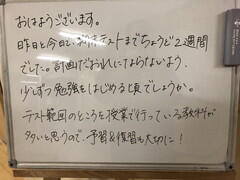 おはようございます。
昨日と今日で、期末テストまでちょうど2週間
でした。計画だおれにならないよう、
少しずつ勉強をはじめると良でしょうか。
テスト範囲のところを授業で行っている教科が
多いと思うので、予習&復習も大切に!